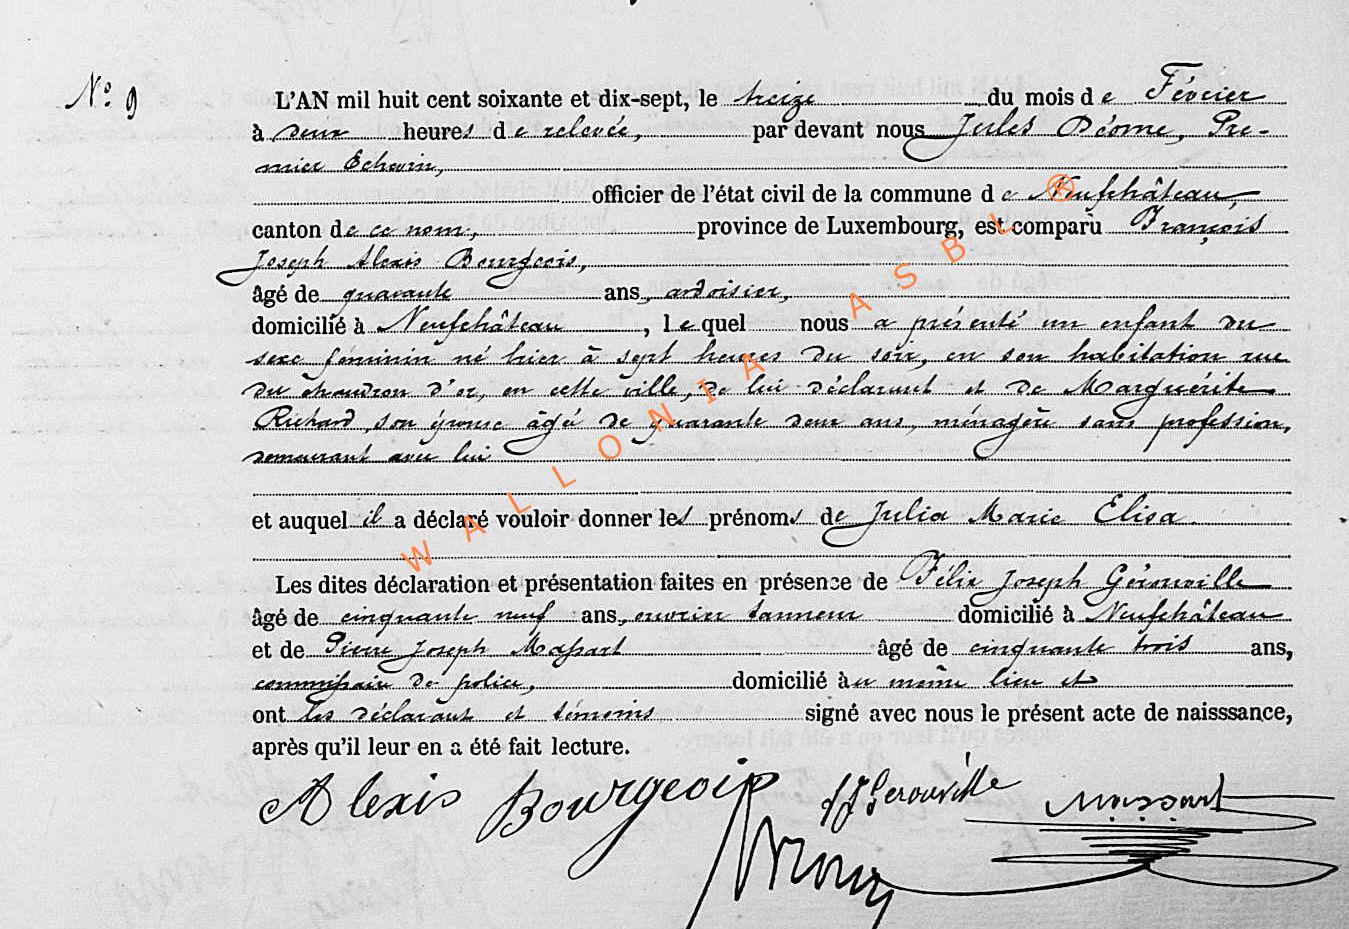 N° 9
L'AN mil huit cent soixante et dix-sept, le treize du mois de Février
à deux heures de relevée, par devant nous Jules Déome, Pre-
mier Echevin,
officier de l'état civil de la commune de Neufchâteau,
canton de ce nom, province de Luxembourg, est comparu François
Joseph Alexis Bourgeois,
âgé de quarante ans, ardoisier,
domicilié à Neufchâteau, lequel nous a présenté un enfant du
sexe féminin né hier à sept heures du soir, en son habitation rue
du chaudron d'or, en cette ville, de lui déclarant et de Marguérite
Richard, son épouse âgée de quarante deux ans, ménagère sans profession,
demeurant avec lui
et auquel il a déclaré vouloir donner les prénoms de Julia Marie Elisa.
Les dites déclaration et présentation faites en présence de Félix Joseph Gérouville
âgé de cinquante neuf ans, ouvrier tanneur domicilié à Neufchâteau
et de Pierre Joseph Massart âgé de cinquante trois ans,
commissaire de police, domicilié au même lieu et
ont les déclarant et témoins signé avec nous le présent acte de naisssance,
après qu'il leur en a été fait lecture.
Alexis Bourgeois fJGerouville Massart
WALLONIA ASBL ®